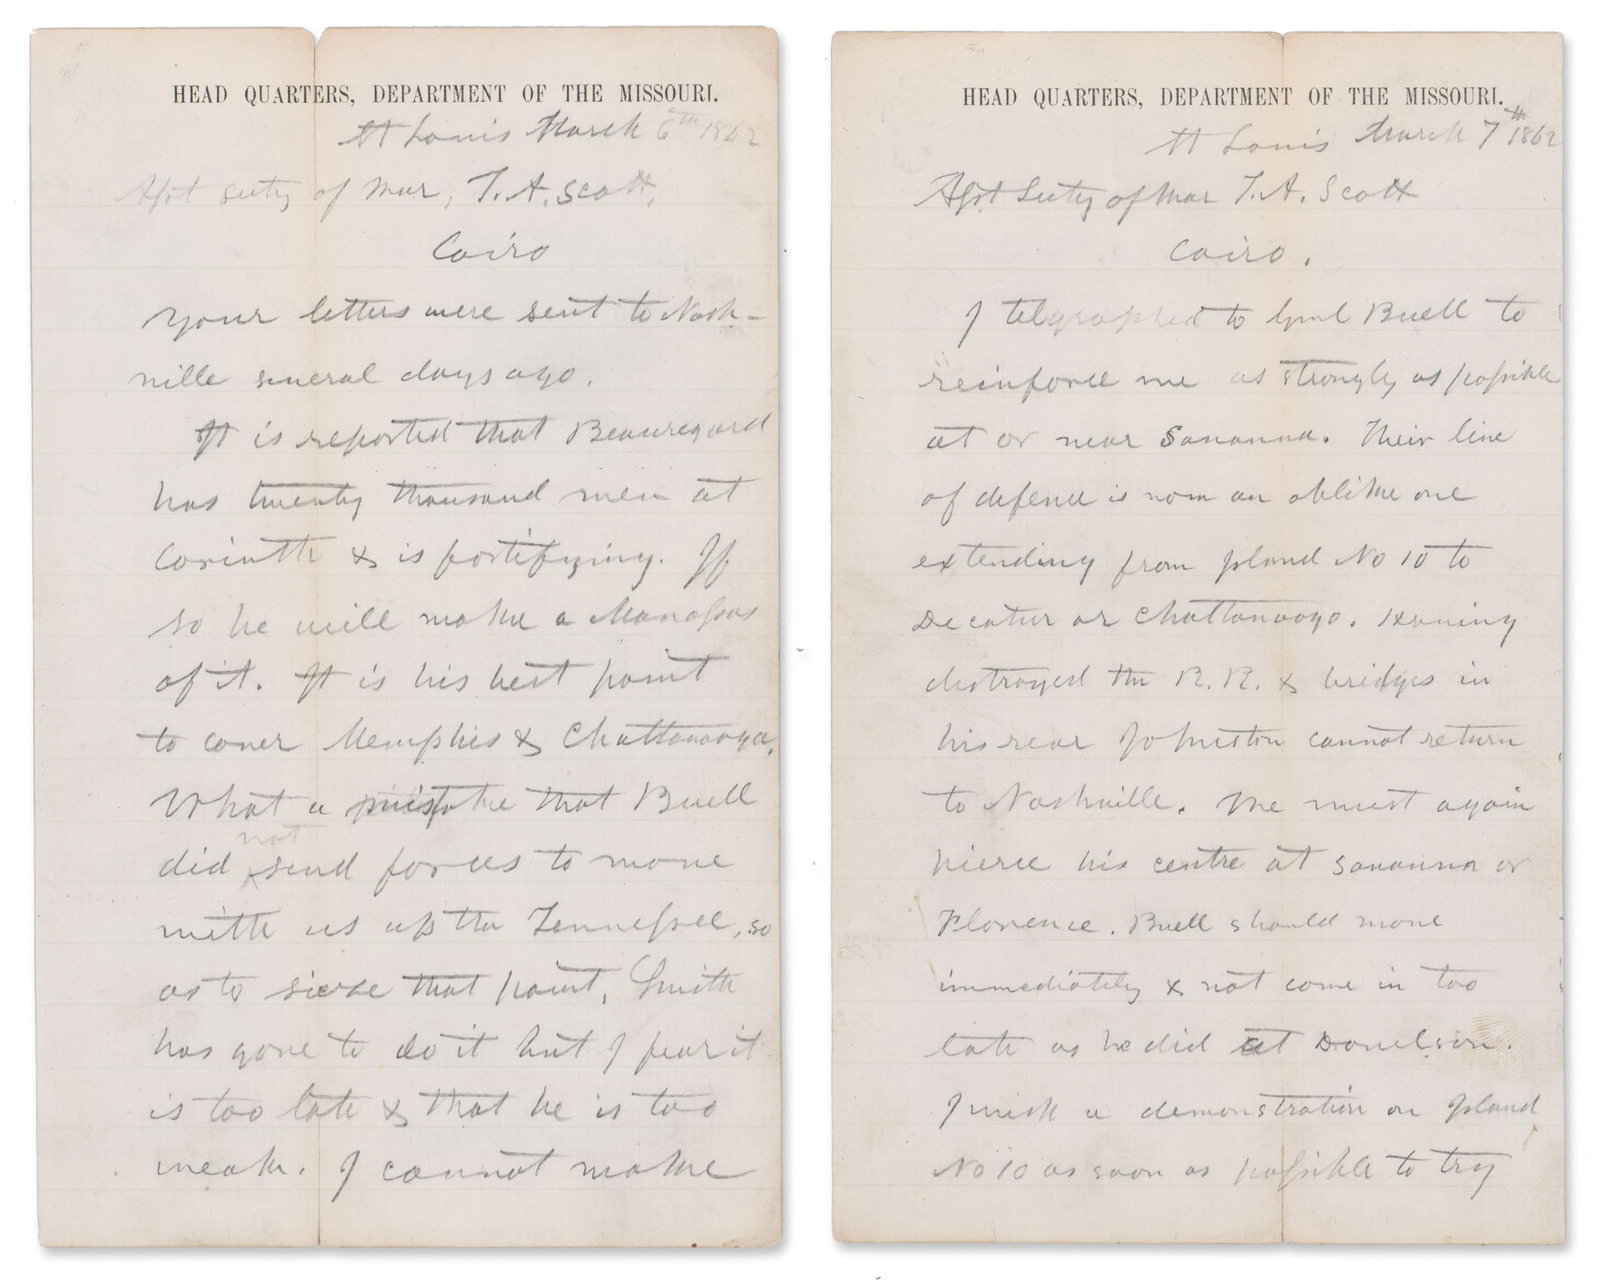 HEAD QUARTERS, DEPARTMENT OF THE MISSOURI.
St Louis March 6th 1862
Asst Secty of War, T. A. Scott,
Cairo
Your letters were sent to Nash-
ville several days ago.
It is reported that Beauregard
has twenty thousand men at
Corinth & is fortifying. If
so he will make a Manassas
of it. It is his best point
to cover Memphis & Chattanooga.
What a mistake that Buell
did not send forces to move
with us up the Tennessee, so
as to sieze that point. Smith
has gone to do it but I fear it
is too late & that he is too
weak. I cannot make
HEAD QUARTERS, DEPARTMENT OF THE MISSOURI.
St Louis March 7th 1862
Asst Secty of War T. A. Scott
Cairo.
I telegraphed to Genl Buell to
reinforce me as strongly as possible
at or near Savanna. Their line
of defence is now an oblike one
extending from Island No 10 to
Decatur or Chattanooga. Having
destroyed the R. R. & bridges in
his rear Johnston cannot return
to Nashville. We must again
pierce his centre at Savanna or
Florence. Buell should move
immediately & not come in too
late as he did at Donelson.
I wish a demonstration on Island
No 10 as soon as possible to try